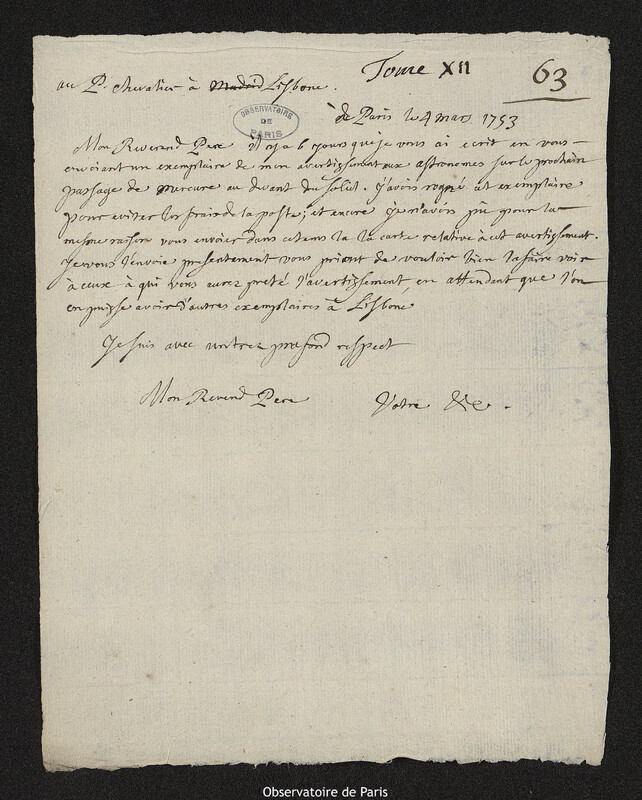 Tome XII
63
au P. Chevalier à Madrid Lisbone.
OBSERVATOIRE DE PARIS
de Paris le 4 mars 1753
Mon Reverend Pere il y a 6 jours que je vous ai ecrit en vous
envoiant un exemplaire de mon avertissement aux astronomes sur le prochain
passage de mercure au devant du soleil. j'avois rogné cet exemplaire
pour eviter les frais de la poste; et encore je n'avois pû pour la
mesme raison vous envoier dans ce tems la la carte relative à cet avertissement.
Je vous l'envoie presentement vous priant de vouloir bien la faire voir
à ceux à qui vous aurez preté l'avertissement en attendant que l'on
en puisse avoir d'autres exemplaires à Lisbone
Je suis avec un tres profond respect
Mon Reverend Pere Votre &c.
Observatoire de Paris